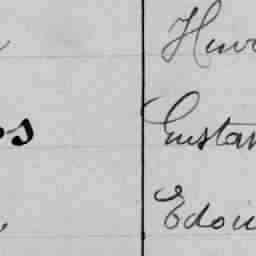 Henr
os Gustav
Edou